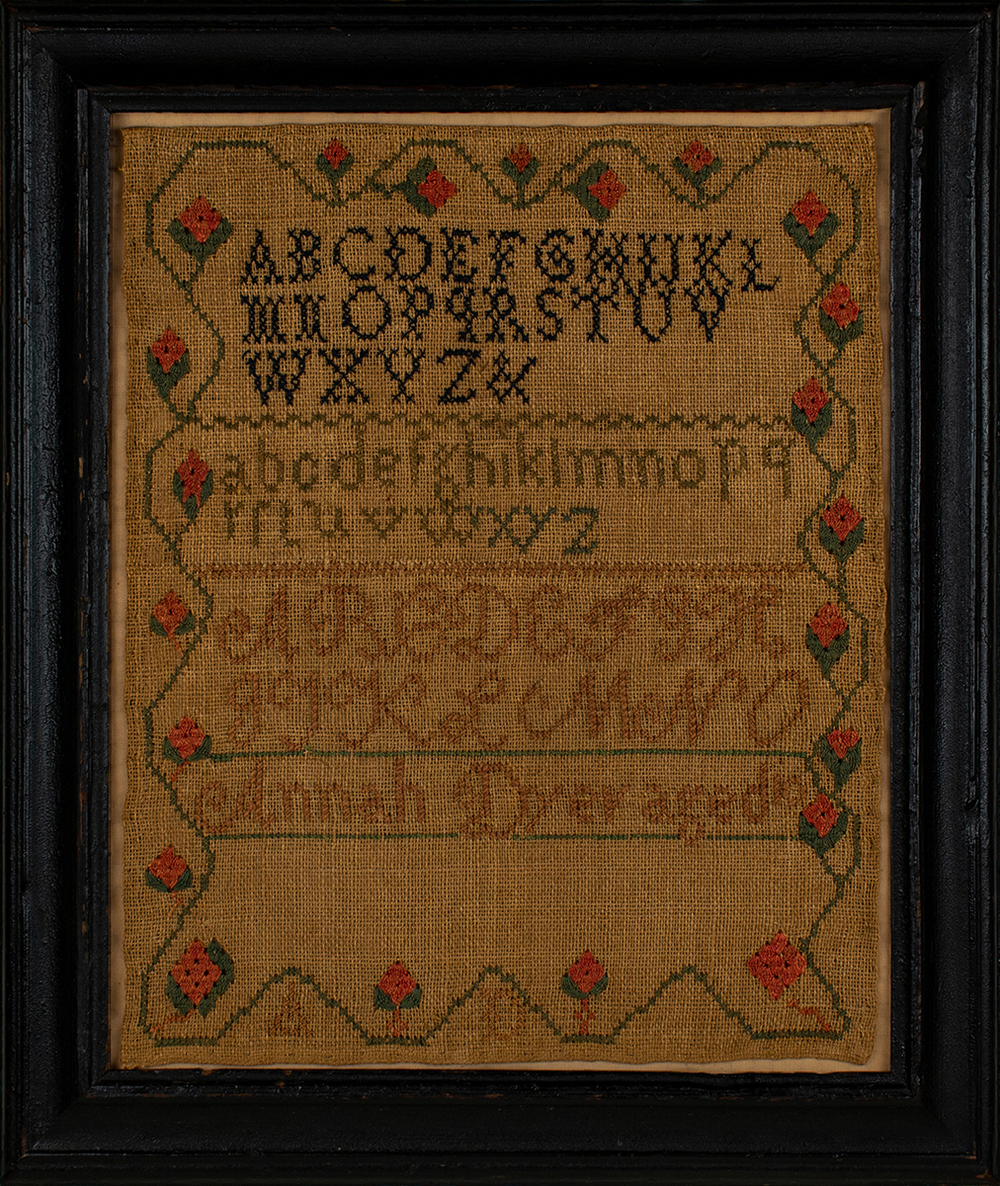 ABCDEFGHIJKL
MNOPqRSTUV
WXYZ&
abcdefghiklmnopq
rſtuvwxyz
ABCDEFGH
IJKLMNO
Annah Dyer aged
A D